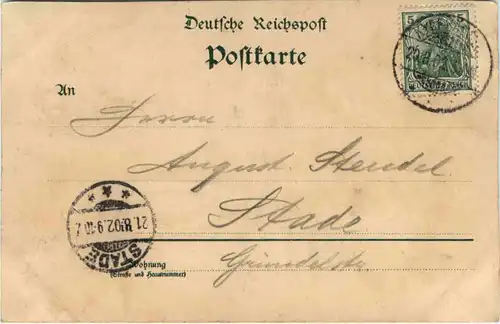 Deutsche Reichspost
Postkarte
5 5
An
Herrn
August Stendel.
Stade
21.8.02.9-10
STADE
Wohnung
(Straße und Hausnummer)